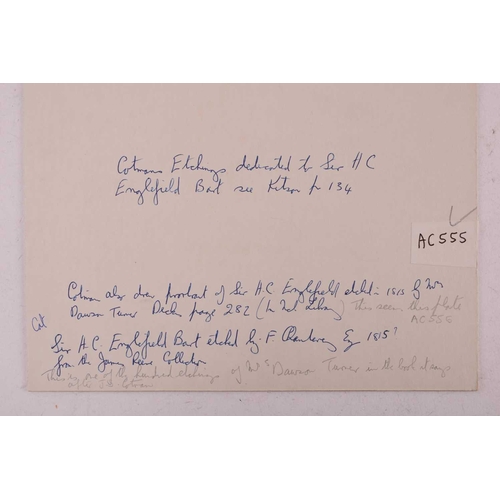 Cotmans Etchings dedicated to Sir H C
Englefield Bart see Kitson p 134
AC555
Cotman also drew portrait of Sir H.C Englefield etched in 1815 by Mrs
Dawson Turner page 282 (In Nat Library) This seems this plate
AC555
Cat
Sir H.C. Englefield Bart etched by F. Chantrey Esq 1815?
from the James Reeve Collection
This is one of the hundred etchings of Mrs Dawson Turner in the book it says
after J S Cotman